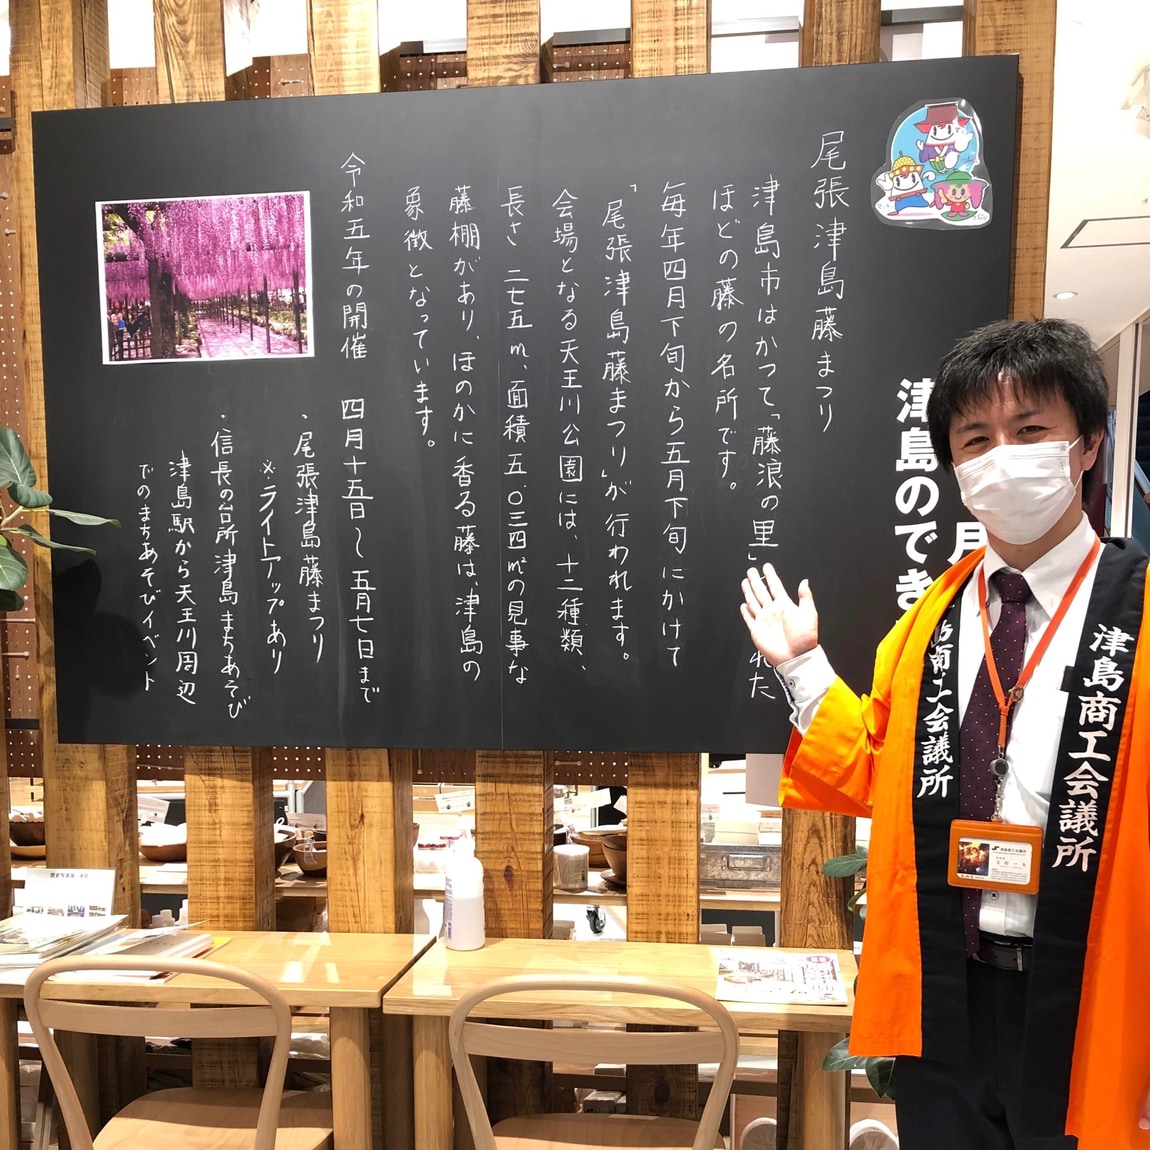 月
津島のでき
尾張津島藤まつり
津島市はかつて「藤浪の里」
れた
ほどの藤の名所です。
毎年四月下旬から五月下旬にかけて
「尾張津島藤まつり」が行われます。
会場となる天王川公園には、十二種類、
長さ二七五m、面積五.〇三四㎡の見事な
藤棚があり、ほのかに香る藤は、津島の
象徴となっています。
令和五年の開催　四月十五日〜五月七日まで
・尾張津島藤まつり
※ライトアップあり
・信長の台所津島まちあそび
津島駅から天王川周辺
でのまちあそびイベント
津島商工会議所
商工会議所